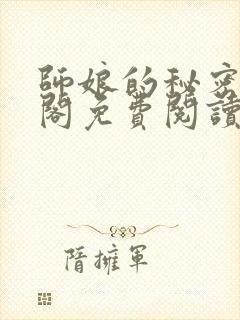 師娘的秘密
閣免費閱讀
隋擁軍